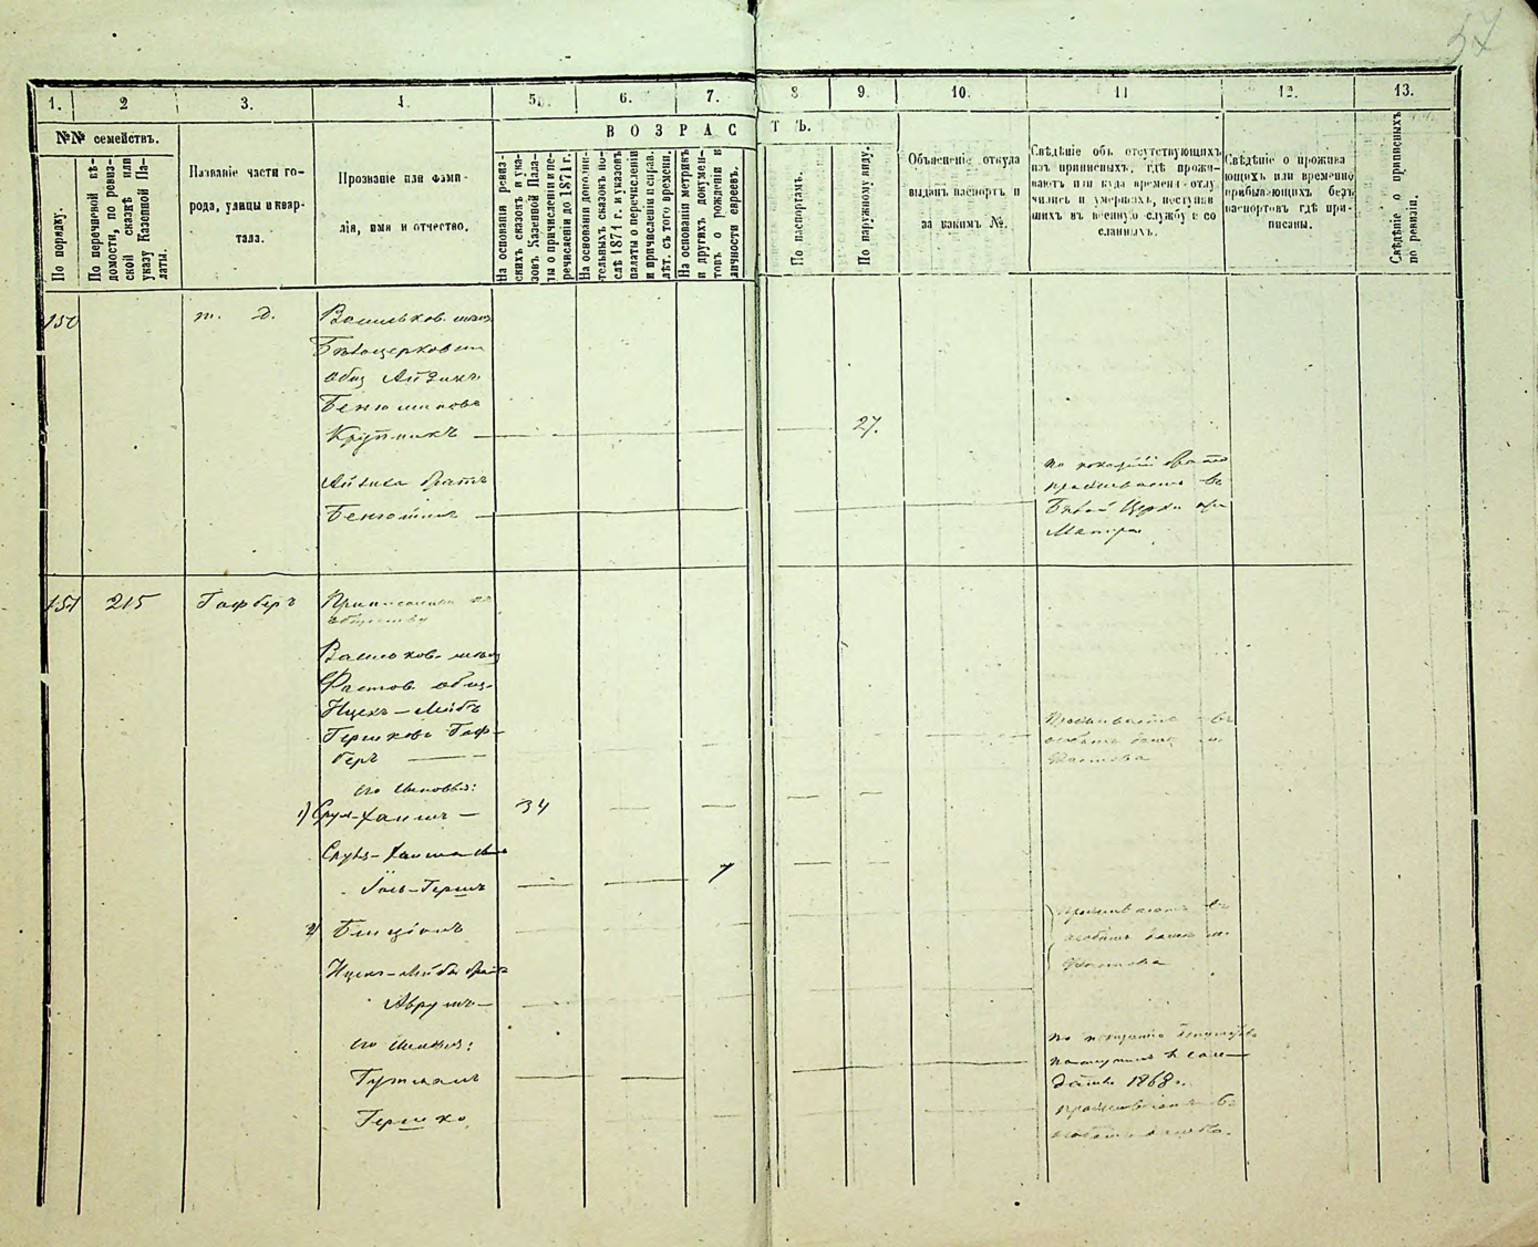 57
1. 2 3. 4. 5. 6. 7. 8 9. 10. 11 12. 13.
№№ семействъ.
ВОЗРАСТЪ.
По порядку.
По перечневой вѣ-
домости, по ревиз-
ской сказкѣ или
указу Казенной Па-
латы.
Названіе части го-
рода, улицы и квар-
тала.
Прозваніе или фами-
лія, имя и отчество.
На основаніи ревиз-
скихъ сказокъ и ука-
зовъ Казенной Пала-
ты о причисленіи и пе-
речисленіи до 1871 г.
На основаніи дополни-
тельныхъ сказокъ по-
слѣ 1871 г. и указовъ
палаты о перечисленіи
и причисленіи и справ.
лѣт. съ того времени.
На основаніи метрикъ
и другихъ докумен-
товъ о рожденіи и
личности евреевъ.
По паспортамъ.
По наружному виду.
Объясненіе откуда
выданъ паспортъ и
за какимъ №.
Свѣдѣніе объ отсутствующихъ
изъ приписныхъ, гдѣ прожи-
ваютъ или куда временно отлу
чились и умершихъ, поступив
шихъ въ военную службу и со
сланныхъ.
Свѣдѣніе о прожива
ющихъ или временно
прибывающихъ безъ
паспортовъ гдѣ при-
писаны.
Свѣдѣніе о приписныхъ
по ревизіи.
150 т. д. Васильков.
Бѣлоцерковск
общ Айзикъ
Бенюминовъ
Крупникъ — 27.
Айзика братъ
Бенюминъ —
проживаетъ въ
Бѣлой Церкви при
Матери
151 215 Гофберъ Приписанные къ
обществу
Васильков.
Фастов. общ.
Ицекъ-Лейбъ
Гершковъ Гоф-
беръ —
Проживаетъ въ
особомъ домѣ м.
Фастова
его сыновья:
1) Срул-Хаимъ — 34
Сруля-Хаима сынъ
Іоль-Гершъ 7
2) Бенціонъ
проживаютъ въ
особомъ домѣ м.
Фастова
Ицека-Лейбы братъ
Аврумъ —
его сыновья:
Гутманъ
поступилъ въ сол-
даты 1868 г.
Гершко
проживаютъ въ